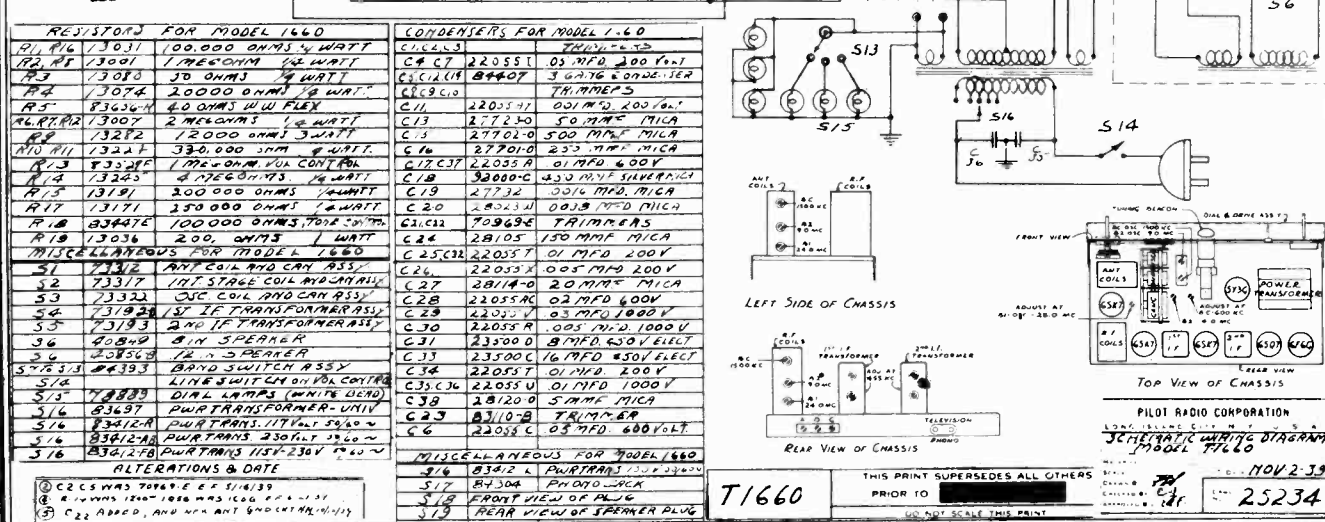 RESISTORS FOR MODEL 1660
R1, R16 13031 100,000 OHMS ¼ WATT
R2, R8 13001 1 MEGOHM ¼ WATT
R3 13080 50 OHMS ¼ WATT
R4 13074 20000 OHMS ¼ WATT
R5 40 OHMS W W FLEX
R6, R7, R12 13007 2 MEGOHMS ¼ WATT
R9 13282 12000 OHMS 3 WATT
R10 R11 13227 330,000 OHM ¼ WATT
R13 83529F 1 MEGOHM, VOL CONTROL
R14 13245 4 MEGOHMS ¼ WATT
R15 13191 200 000 OHMS ¼ WATT
R17 13171 250 000 OHMS ¼ WATT
R18 83447E 100 000 OHMS, TONE CONTROL
R19 13036 200, OHMS 1 WATT
MISCELLANEOUS FOR MODEL 1660
S1 73312 ANT COIL AND CAN ASSY
S2 73317 INT. STAGE COIL AND CAN ASSY
S3 73322 OSC. COIL AND CAN ASSY
S4 1ST IF TRANSFORMER ASSY
S5 73193 2ND IF TRANSFORMER ASSY
S6 40849 8 IN SPEAKER
S6 12 IN SPEAKER
S7 TO S13 84393 BAND SWITCH ASSY
S14 LINE SWITCH ON VOL CONTROL
S15 78889 DIAL LAMPS (WHITE BEAD)
S16 83697 PWR TRANSFORMER-UNIV
S16 83412-R PWR TRANS. 117 VOLT 50/60 ~
S16 83412-AB PWR TRANS. 230 VOLT 50/60 ~
S16 83412-FB PWR TRANS 115V-230V 50/60 ~
ALTERATIONS & DATE
C2 C5 WAS 70969-E 5/16/39
C22 ADDED, AND
CONDENSERS FOR MODEL 1660
C1, C2, C3 TRIMMERS
C4 C7 22055T .05 MFD. 200 VOLT
C5 C12 C14 84407 3 GANG CONDENSER
C8 C9 C10 TRIMMERS
C11 .001 MFD. 200 VOLT
C13 50 MMF MICA
C15 27702-0 500 MMF MICA
C16 27701-0 250 MMF MICA
C17, C37 22055A .01 MFD. 600V
C18 92000-C 450 MMF SILVER MICA
C19 27732 .0016 MFD. MICA
C20 MFD MICA
C21, C22 70969-E TRIMMERS
C24 28105 150 MMF MICA
C25 C32 22055T .01 MFD 200V
C26 22055X .005 MFD 200V
C27 28114-0 20 MMF MICA
C28 22055AC .02 MFD 600V
C29 22055V .03 MFD 1000V
C30 22055R .005 MFD. 1000V
C31 23500D 8 MFD. 450V ELECT
C33 23500C 16 MFD 450V ELECT
C34 22055T .01 MFD. 200V
C35, C36 22055U .01 MFD 1000V
C38 28120-0 5 MMF MICA
C23 83110-B TRIMMER
C6 22055C .05 MFD. 600 VOLT
MISCELLANEOUS FOR MODEL 1660
S16 83412 L PWR TRANS
S17 84304 PHONO JACK
S18 FRONT VIEW OF PLUG
S19 REAR VIEW OF SPEAKER PLUG
S6
S13
S15
S16
S14
C36
C35
ANT COILS
R.F COILS
BC 1500 KC
B2 9.0 MC
B1 24.0 MC
LEFT SIDE OF CHASSIS
R.F COILS
1ST I.F. TRANSFORMER
2ND I.F. TRANSFORMER
BC 1500 KC
ADJ AT 455 KC
B2 9.0 MC
B1 24.0 MC
TELEVISION
PHONO
REAR VIEW OF CHASSIS
TUNING BEACON
DIAL & DRIVE ASS'Y
FRONT VIEW
BC OSC 1500 KC
B2 OSC 9.0 MC
ANT COILS
6SK7
GANG
5Y3G
POWER TRANSFORMER
ADJUST AT BC-600 KC
R.F COILS
6SK7
1ST I.F.
6SK7
2ND I.F.
6SQ7
6F6G
REAR VIEW
TOP VIEW OF CHASSIS
PILOT RADIO CORPORATION
LONG ISLAND CITY N Y U S A
SCHEMATIC WIRING DIAGRAM
MODEL T1660
NOV-2-39
25234
T1660
THIS PRINT SUPERSEDES ALL OTHERS
PRIOR TO
DO NOT SCALE THIS PRINT